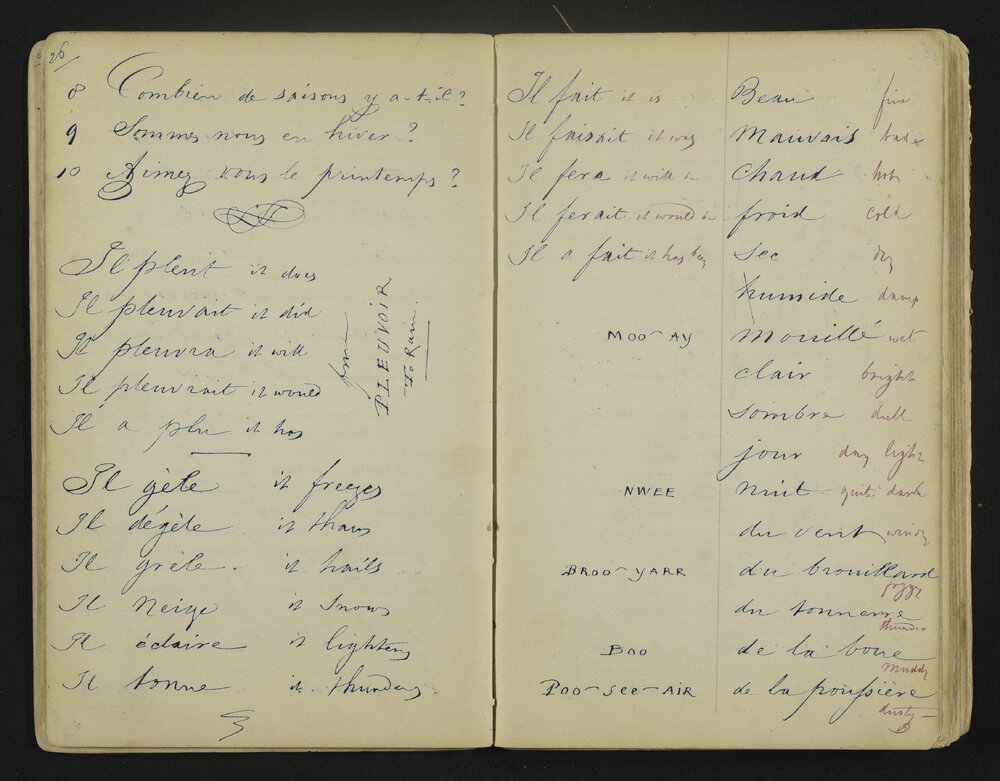 26/
8 Combien de saisons y a-t-il?
9 Sommes nous en hiver?
10 Aimez vous le printemps?
Il pleut it does
Il pleuvait it did
Il pleuvra it will
Il pleuvrait it would
Il a plu it has
from
PLEUVOIR
To Rain.
Il gèle it freezes
Il dégèle it thaws
Il grèle it hails
Il Neige it Snows
Il éclaire it lightens
Il tonne it thunders
Il fait it is Beau fine
Il faisait it was Mauvais bad
Il fera it will be Chaud hot
Il ferait it would be froid cold
Il a fait it has been Sec dry
humide damp
MOO-AY Mouillé wet
clair bright
Sombre dull
jour day light
NWEE Nuit quite dark
du vent windy
BROO-YARR du brouillard
foggy
du tonnerre
thunder
BOO de la boue
muddy
POO-SEE-AIR de la poussière
dusty